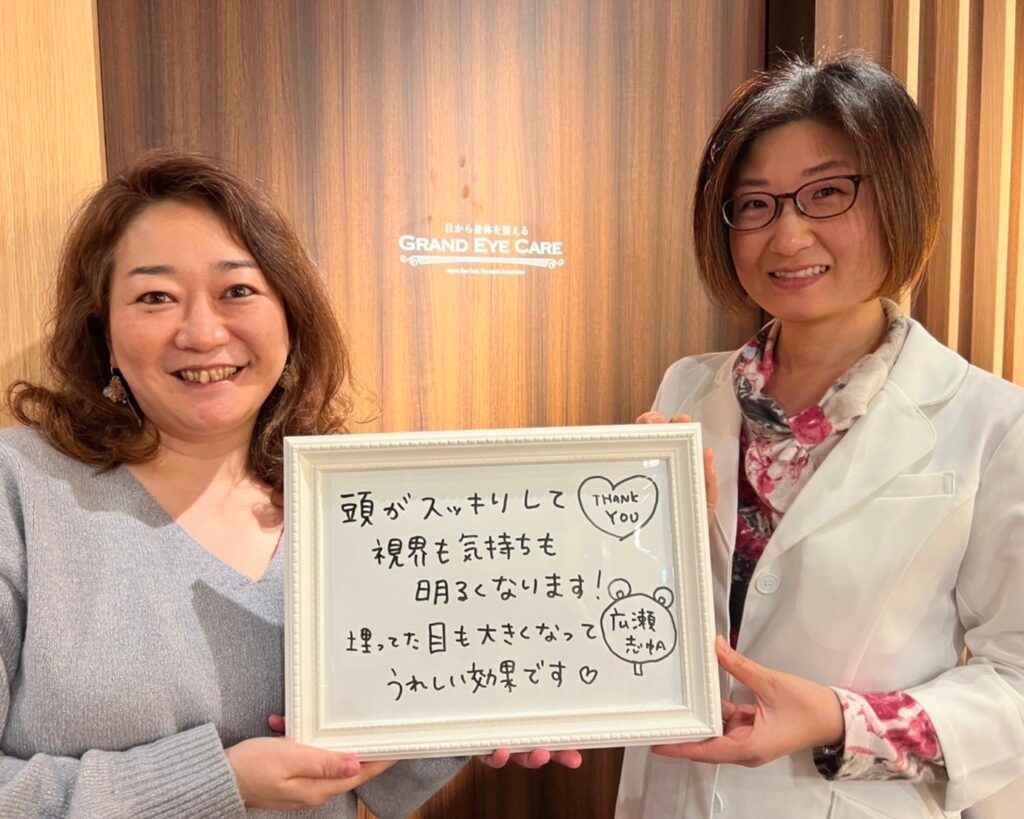 目から身体を整える
GRAND EYE CARE
頭がスッキリして
THANK
YOU
視界も気持ちも
明るくなります!
埋ってた目も大きくなって
うれしい効果です♡
広瀬